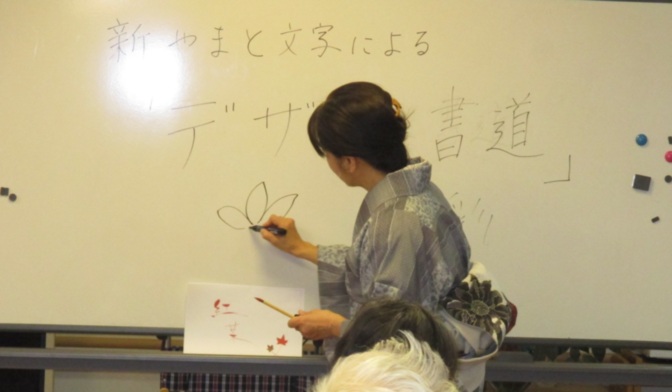 新やまと文字による
「デザ 書道」
彩
紅